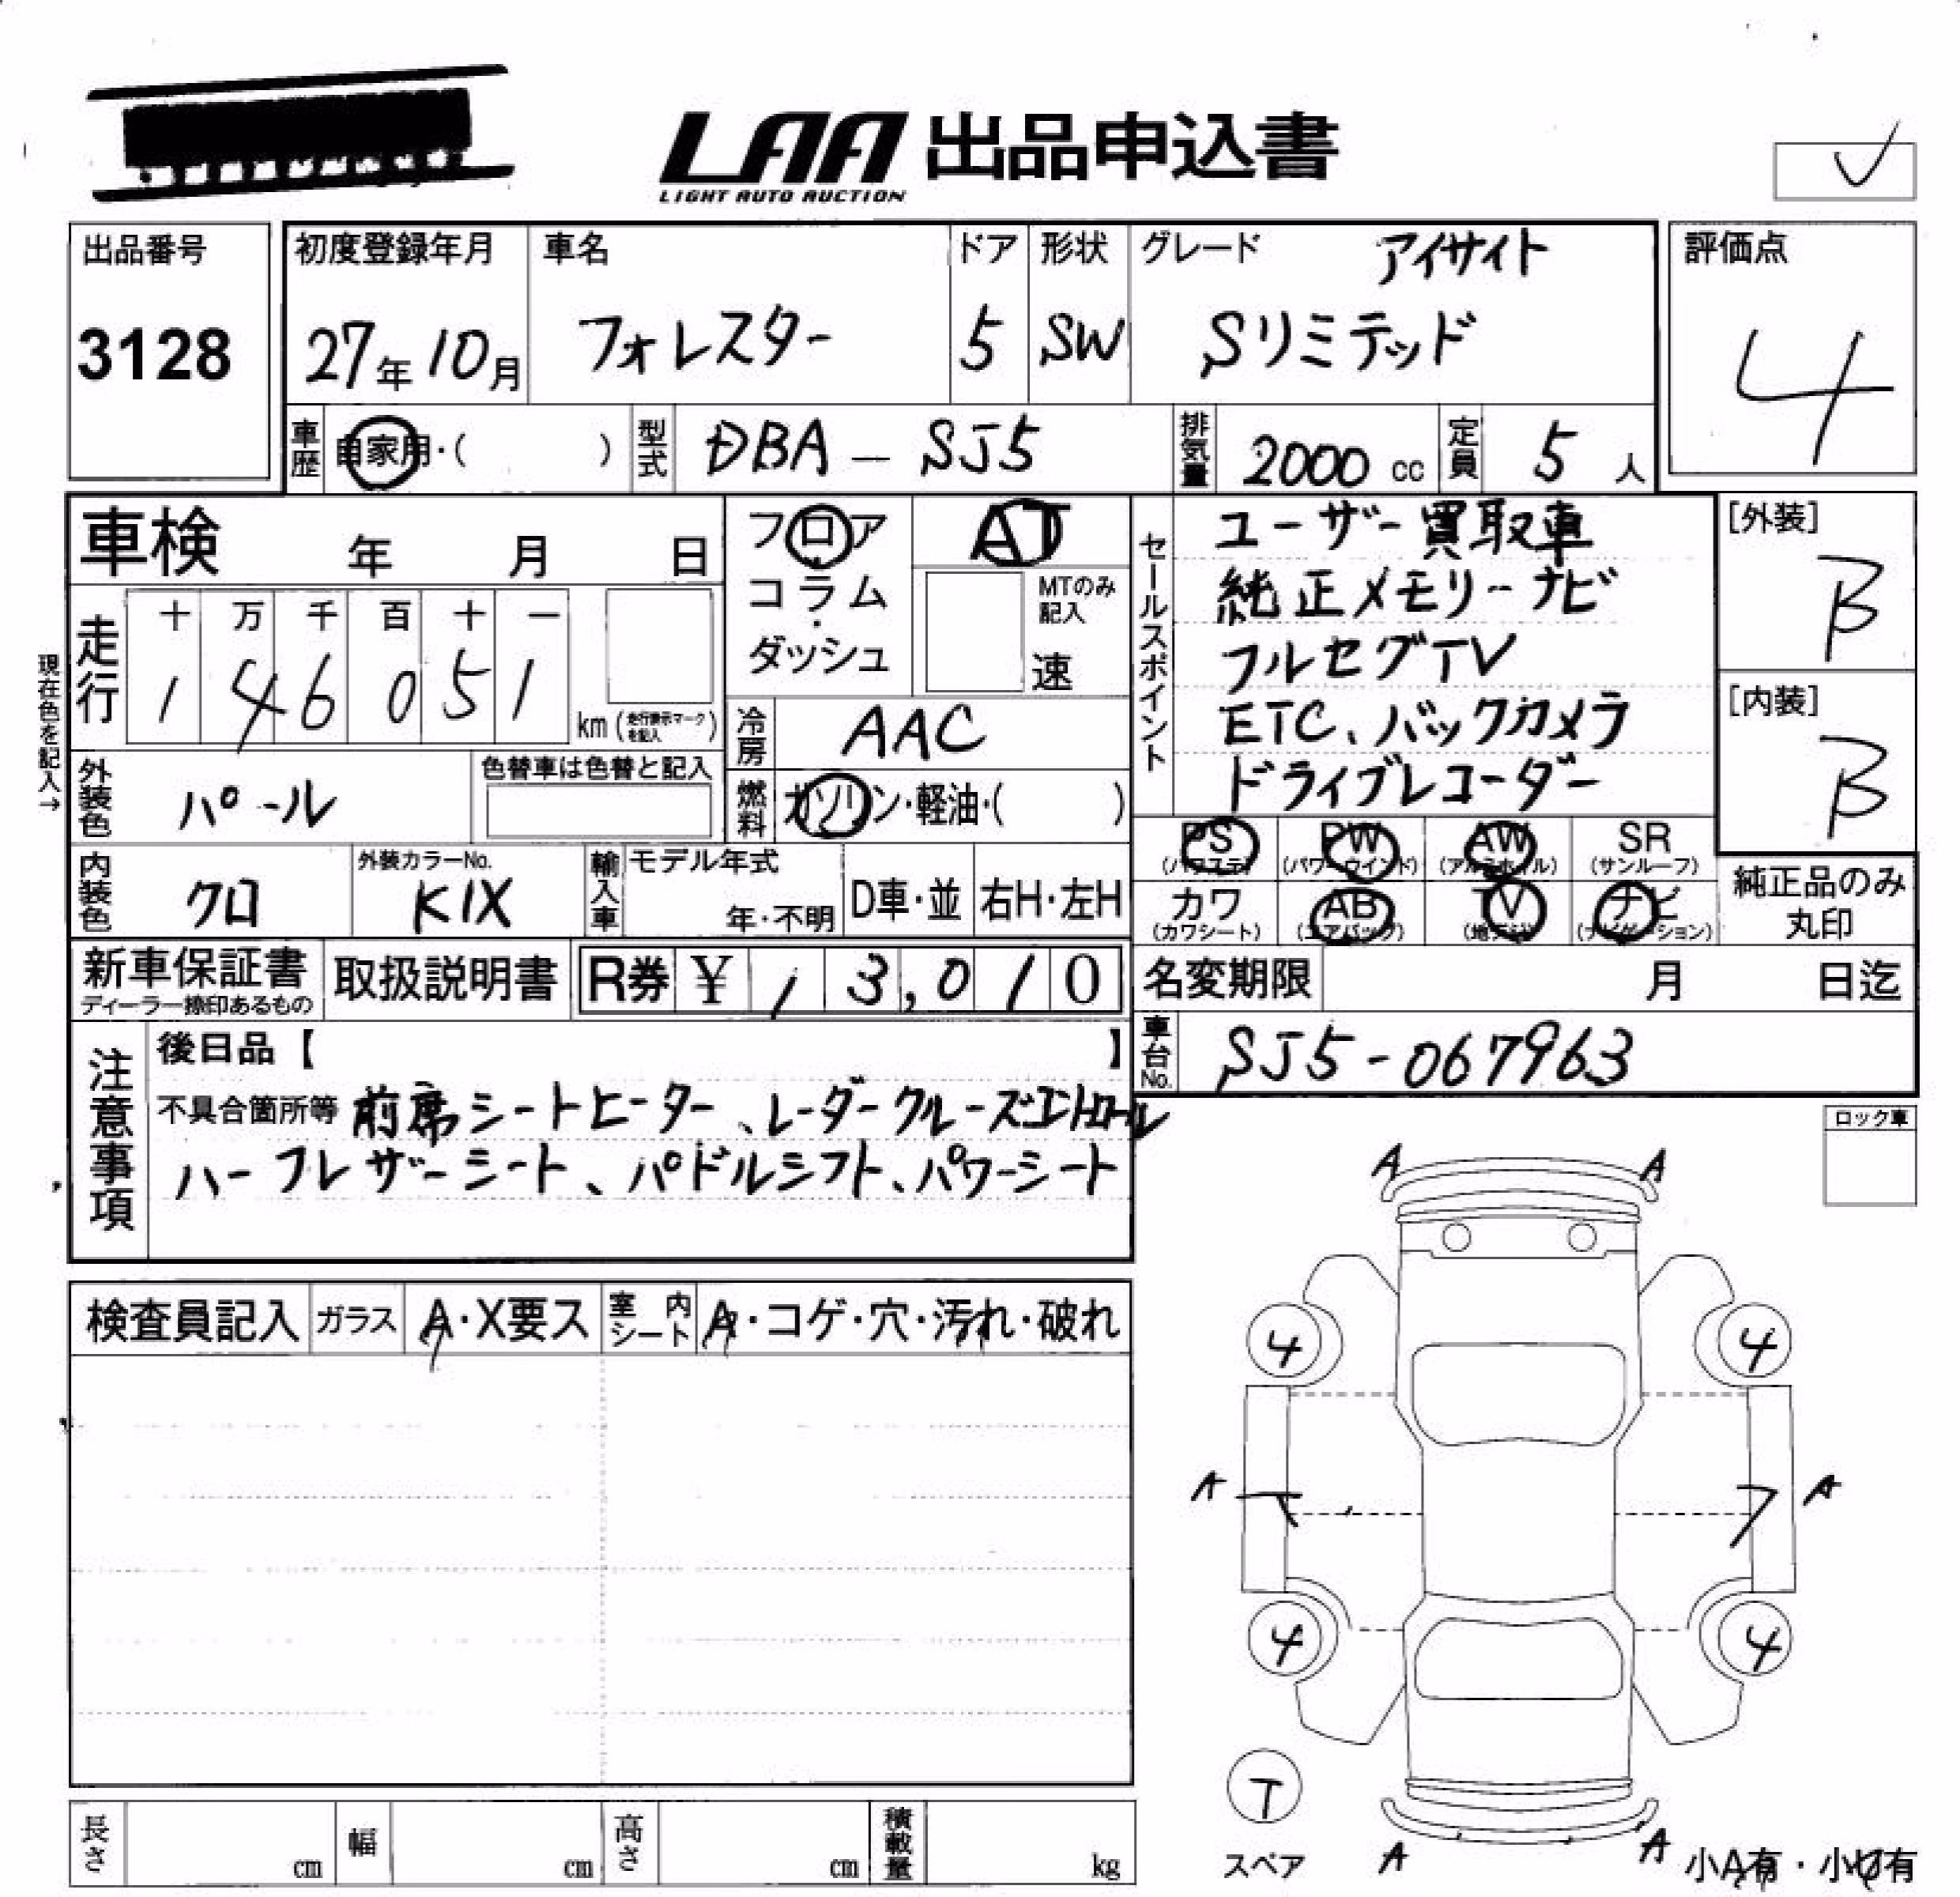 LAA 出品申込書
LIGHT AUTO AUCTION
出品番号
3128
初度登録年月
27年10月
車名
フォレスター
ドア
5
形状
SW
グレード
アイサイト
Sリミテッド
評価点
4
車歴
自家用・( )
型式
DBA-SJ5
排気量
2000 cc
定員
5 人
車検 年 月 日
フロア・コラム・ダッシュ
AT
MTのみ記入
速
セールスポイント
ユーザー買取車
純正メモリーナビ
フルセグTV
ETC、バックカメラ
ドライブレコーダー
[外装]
B
[内装]
B
現在色を記入→
走行
十 万 千 百 十 一
1 4 6 0 5 1
km (走行表示マークを記入)
冷房
AAC
外装色
パール
色替車は色替と記入
燃料
ガソリン・軽油・( )
PS (パワステ)
PW (パワーウインド)
AW (アルミホイル)
SR (サンルーフ)
カワ (カワシート)
AB (エアバック)
TV (地デジ)
ナビ (ナビゲーション)
純正品のみ丸印
内装色
クロ
外装カラーNo.
K1X
輸入車
モデル年式
年・不明
D車・並
右H・左H
新車保証書
ディーラー捺印あるもの
取扱説明書
R券 ¥13,010
名変期限 月 日迄
車台No.
SJ5-067963
注意事項
後日品【 】
不具合箇所等 前席シートヒーター、レーダークルーズコントロール
ハーフレザーシート、パドルシフト、パワーシート
ロック車
検査員記入
ガラス
A・X要ス
室内シート
A・コゲ・穴・汚れ・破れ
A A
4 4
A A
4 4
T
スペア
A A
小A有・小U有
長さ cm
幅 cm
高さ cm
積載量 kg